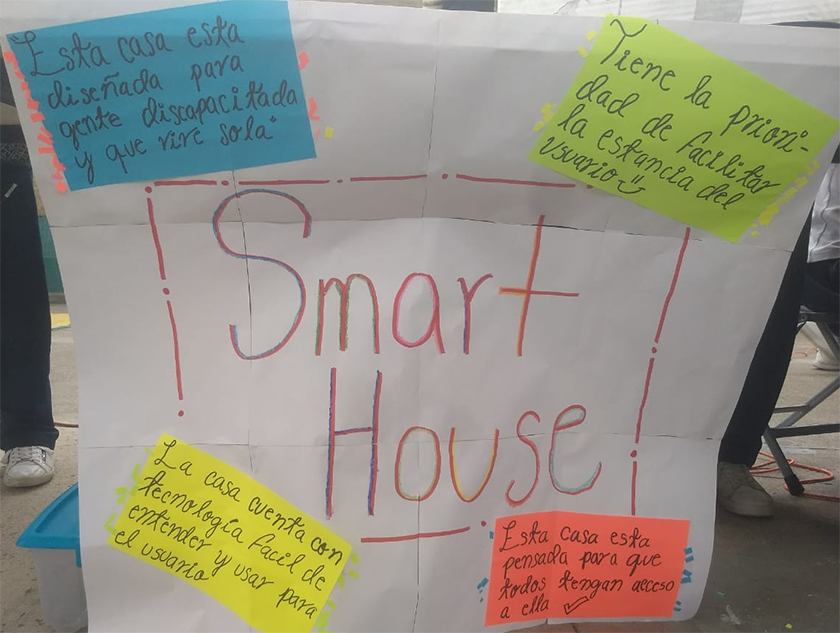 "Esta casa esta
diseñada para
gente discapacitada
y que vive sola"
Tiene la priori-
dad de facilitar
la estancia del
usuario
Smart
House
La casa cuenta con
tecnología facil de
entender y usar para
el usuario
Esta casa esta
pensada para que
todos tengan acceso
a ella